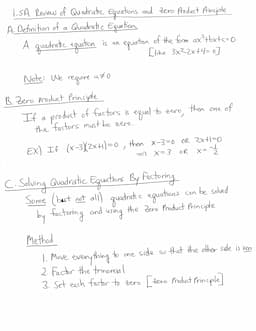 1.5A Review of Quadratic Equations and Zero Product Principle
A. Definition of a Quadratic Equation
A quadratic equation is an equation of the form ax²+bx+c=0
[like 3x²-2x+4=0]
Note: We require a≠0
B. Zero Product Principle
If a product of factors is equal to zero, then one of
the factors must be zero.
EX) If (x-3)(2x+1)=0, then x-3=0 OR 2x+1=0
⟹ x=3 OR x=-1/2
C. Solving Quadratic Equations By Factoring
Some (but not all) quadratic equations can be solved
by factoring and using the Zero Product Principle
Method
1. Move everything to one side so that the other side is zero
2. Factor the trinomial
3. Set each factor to zero [Zero Product Principle]